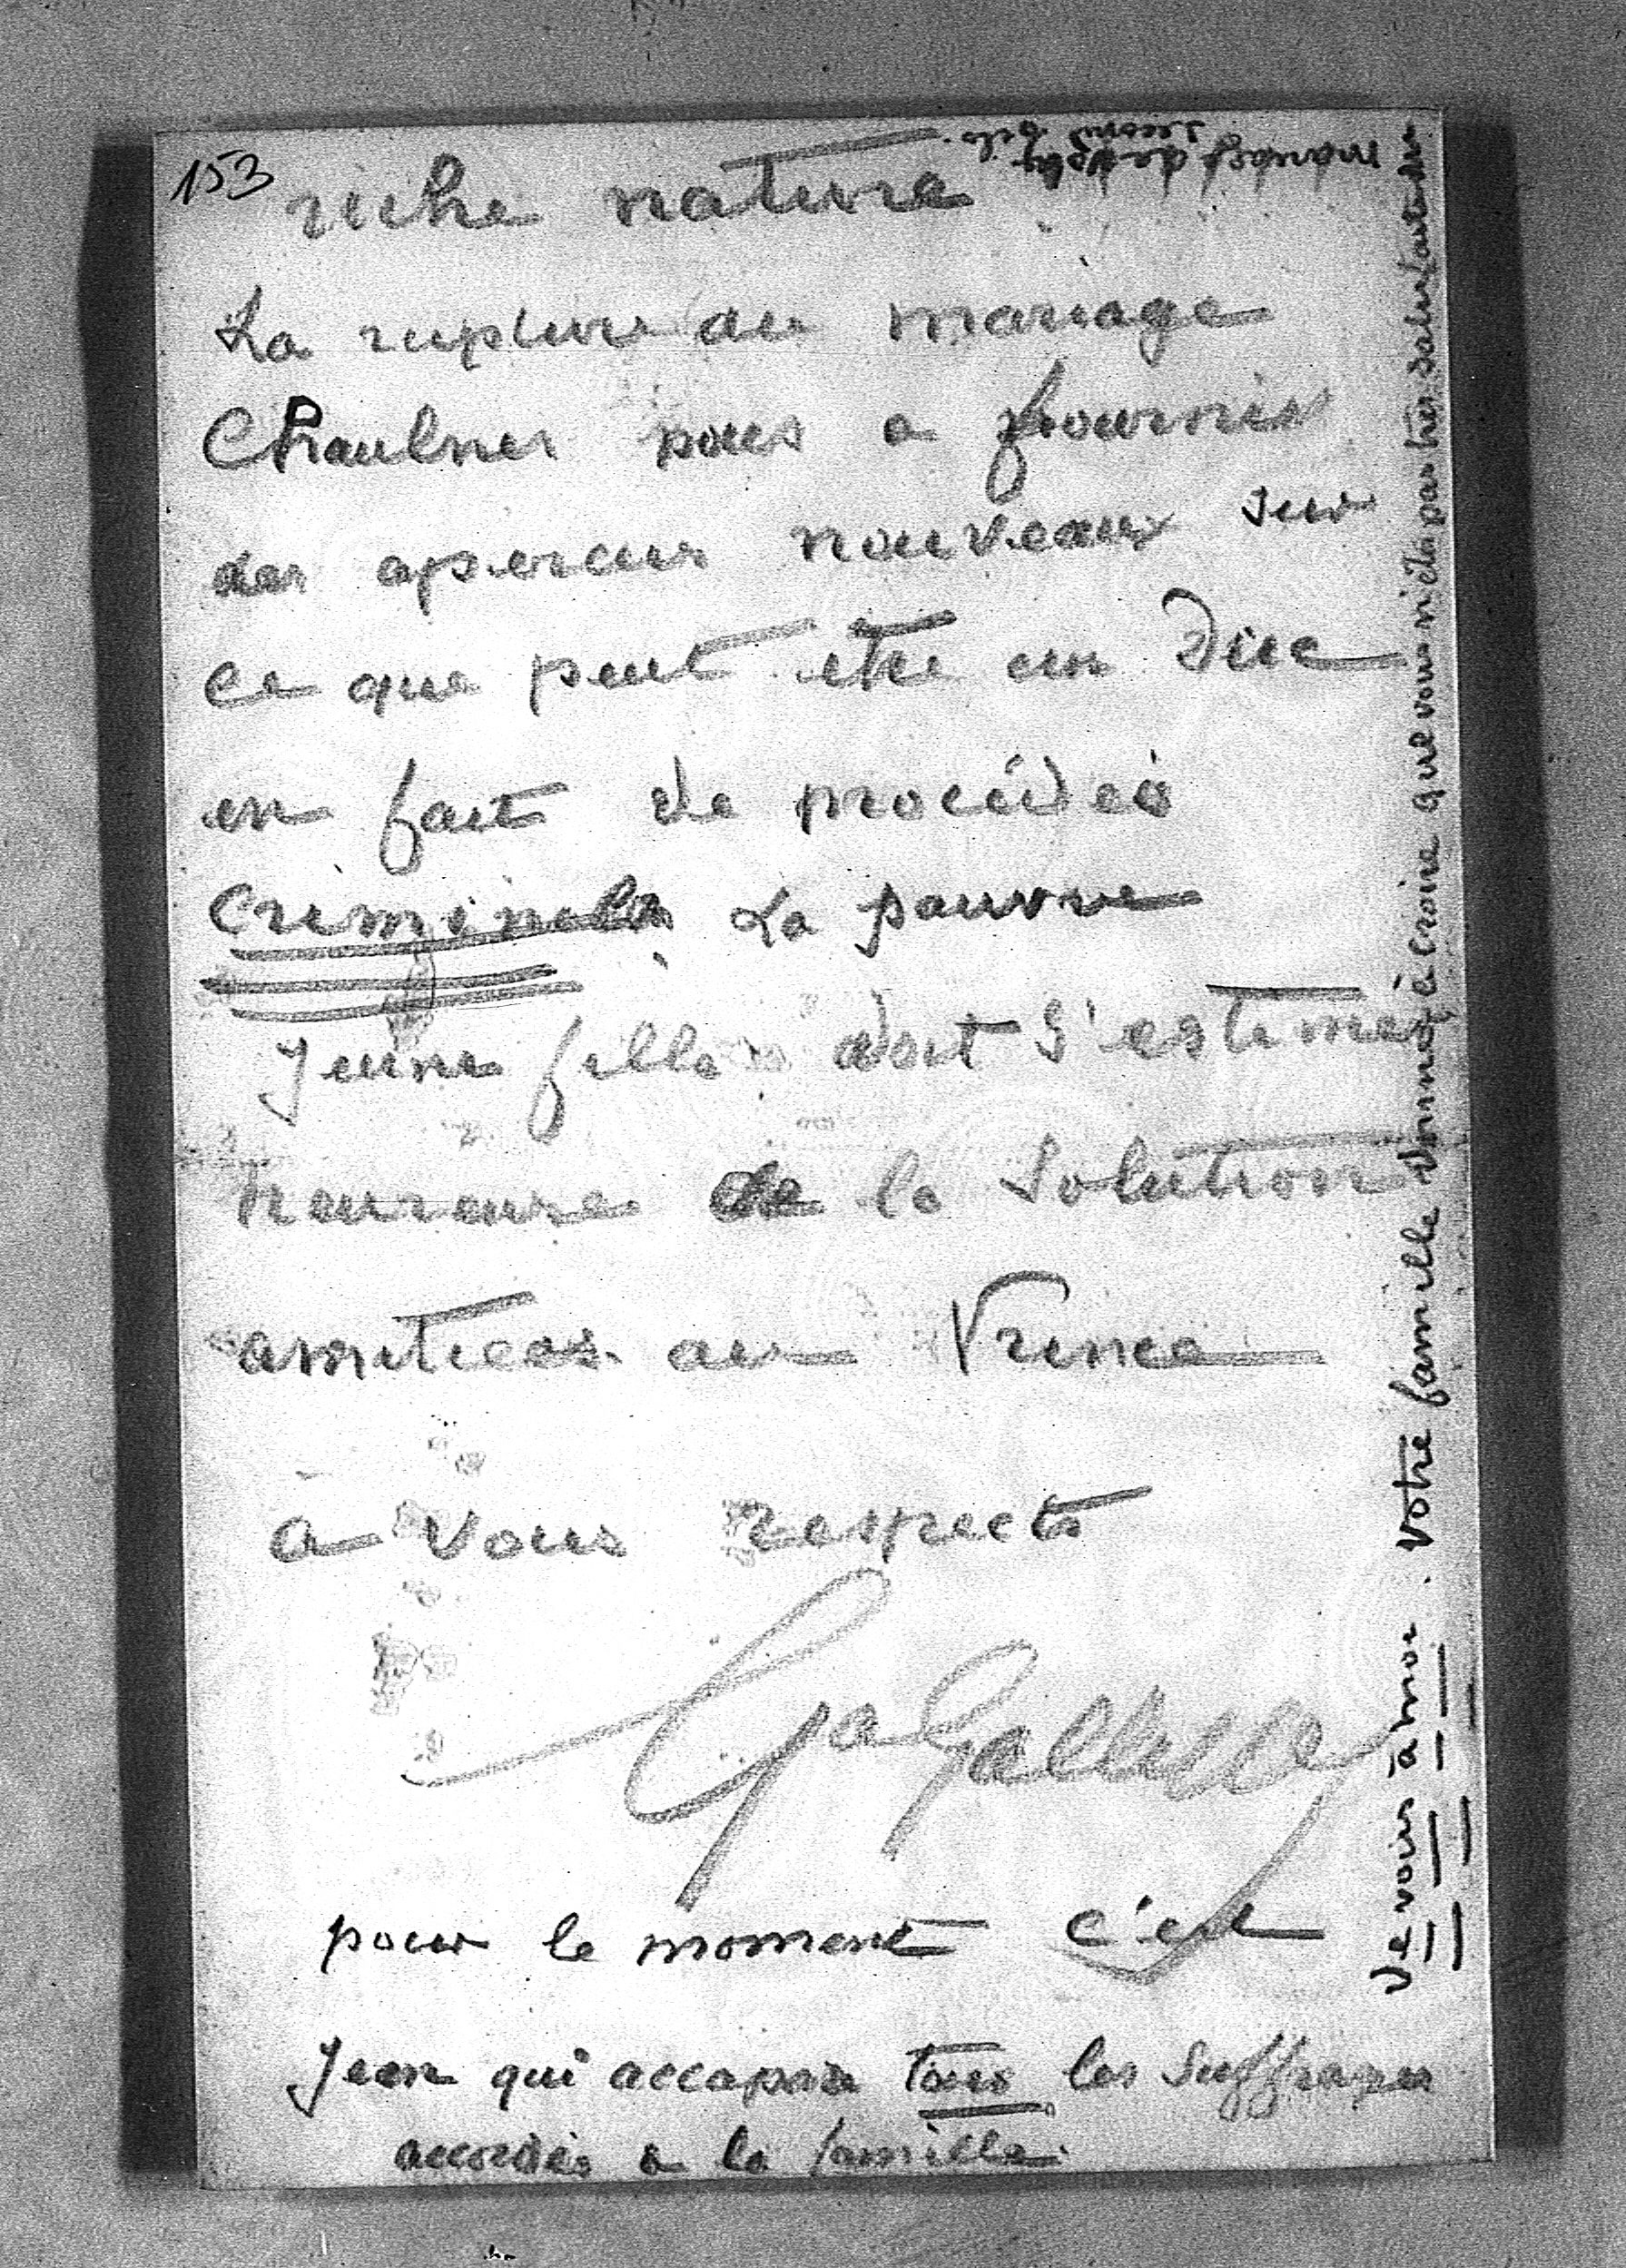 153
riche nature
La rupture du mariage
Chaulnes nous a fournis
des apercus nouveaux sur
ce que peut etre un Duc
en fait de procédés
criminels La pauvre
jeune fille doit s'estimer
heureuse de la solution
amitiees au Prince
à vous respects
pour le moment c'est
Jean qui accapare tous les suffrages
accordés a la famille.
Devoirs à moi. Votre famille donne à croire que vous n'étes pas très